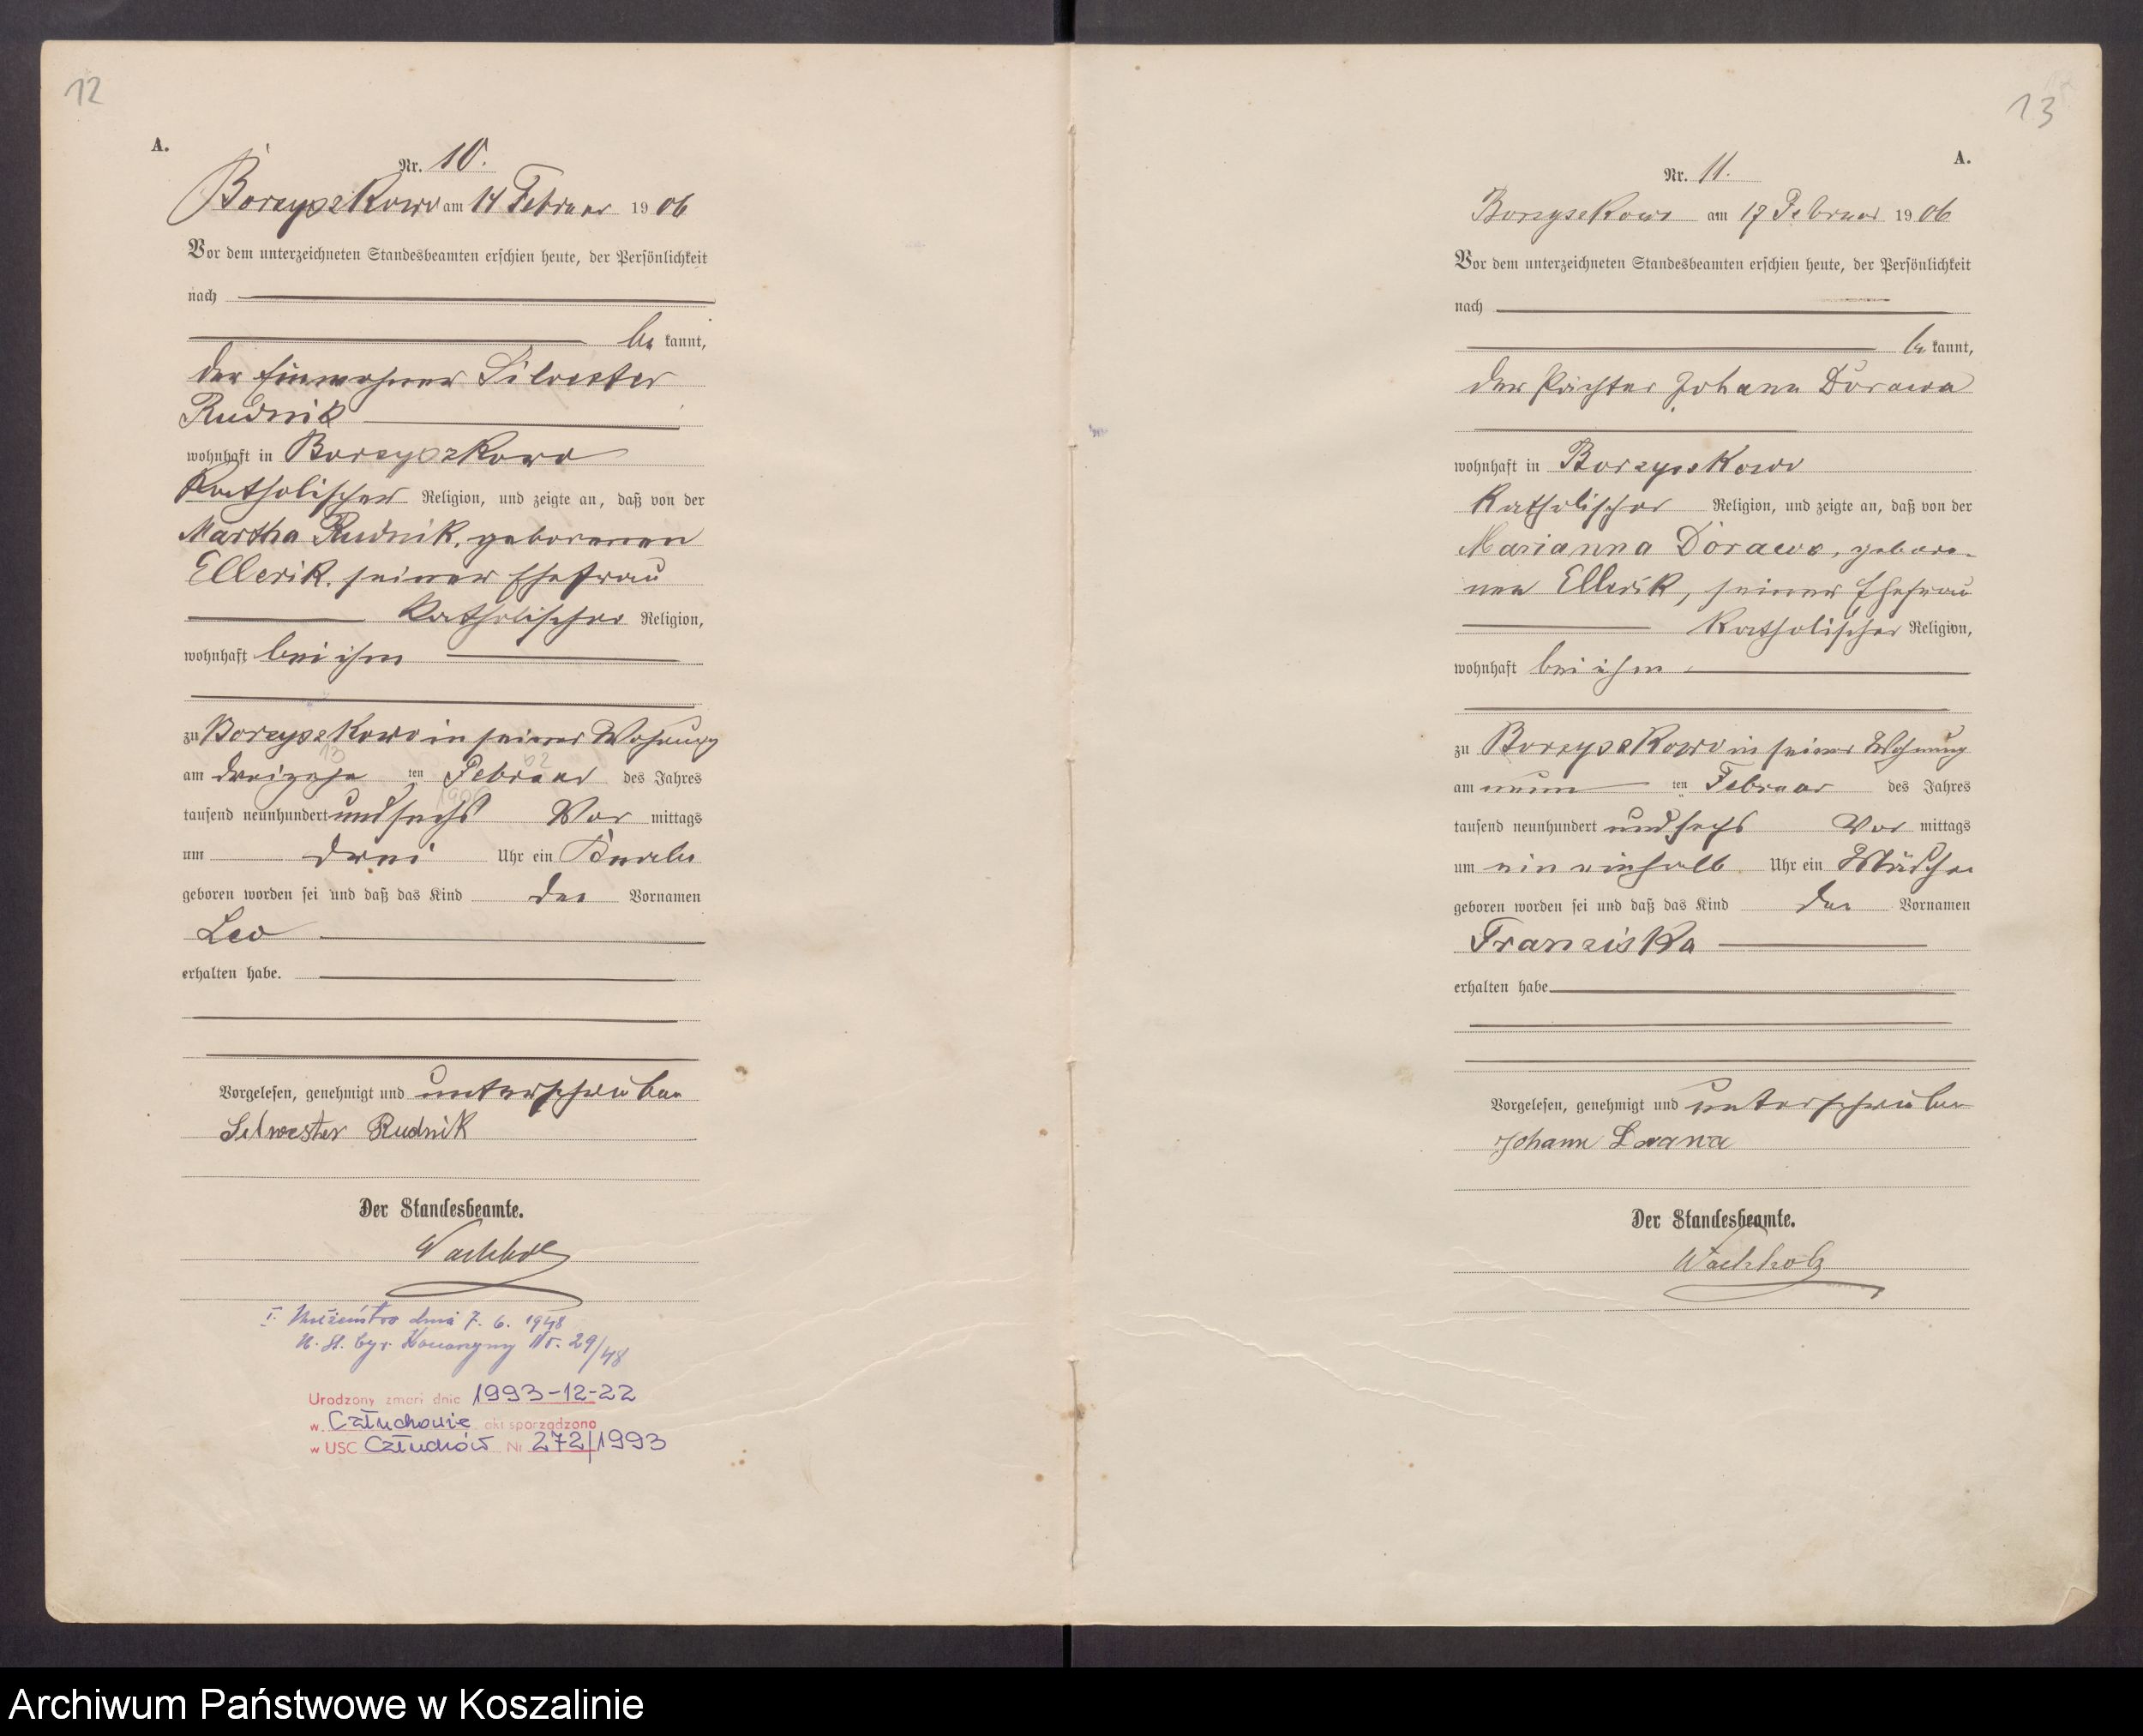 12
A.
Nr. 10.
Borzyszkowo am 14 Februar 1906
Vor dem unterzeichneten Standesbeamten erschien heute, der Persönlichkeit
nach
be kannt,
der Einwohner Silvester
Rudnik
wohnhaft in Borzyszkowo
Katholischer Religion, und zeigte an, daß von der
Martha Rudnik, geborenen
Ellerik, seiner Ehefrau
Katholischer Religion,
wohnhaft bei ihm
zu Borzyszkowo in seiner Wohnung
am dreizehn ten Februar des Jahres
tausend neunhundert und sechs Vor mittags
um drei Uhr ein Knabe
geboren worden sei und daß das Kind den Vornamen
Leo
erhalten habe.
Vorgelesen, genehmigt und unterschrieben
Silwester Rudnik
Der Standesbeamte.
Wachholz
I. Małżeństwo dnia 7. 6. 1948
Nr. 29/48
Urodzony zmarł dnia 1993-12-22
w Człuchowie akt sporządzono
w USC Człuchów Nr 272/1993
13
A.
Nr. 11.
Borzyszkowo am 17 Februar 1906
Vor dem unterzeichneten Standesbeamten erschien heute, der Persönlichkeit
nach
be kannt,
der Pächter Johann Dorawa
wohnhaft in Borzyszkowo
Katholischer Religion, und zeigte an, daß von der
Marianna Dorawa, gebore-
nen Ellerik, seiner Ehefrau
Katholischer Religion,
wohnhaft bei ihm
zu Borzyszkowo in seiner Wohnung
am neun ten Februar des Jahres
tausend neunhundert und sechs Vor mittags
um ein einhalb Uhr ein Mädchen
geboren worden sei und daß das Kind den Vornamen
Franziska
erhalten habe
Vorgelesen, genehmigt und unterschrieben
Johann Dorawa
Der Standesbeamte.
Wachholz
Archiwum Państwowe w Koszalinie